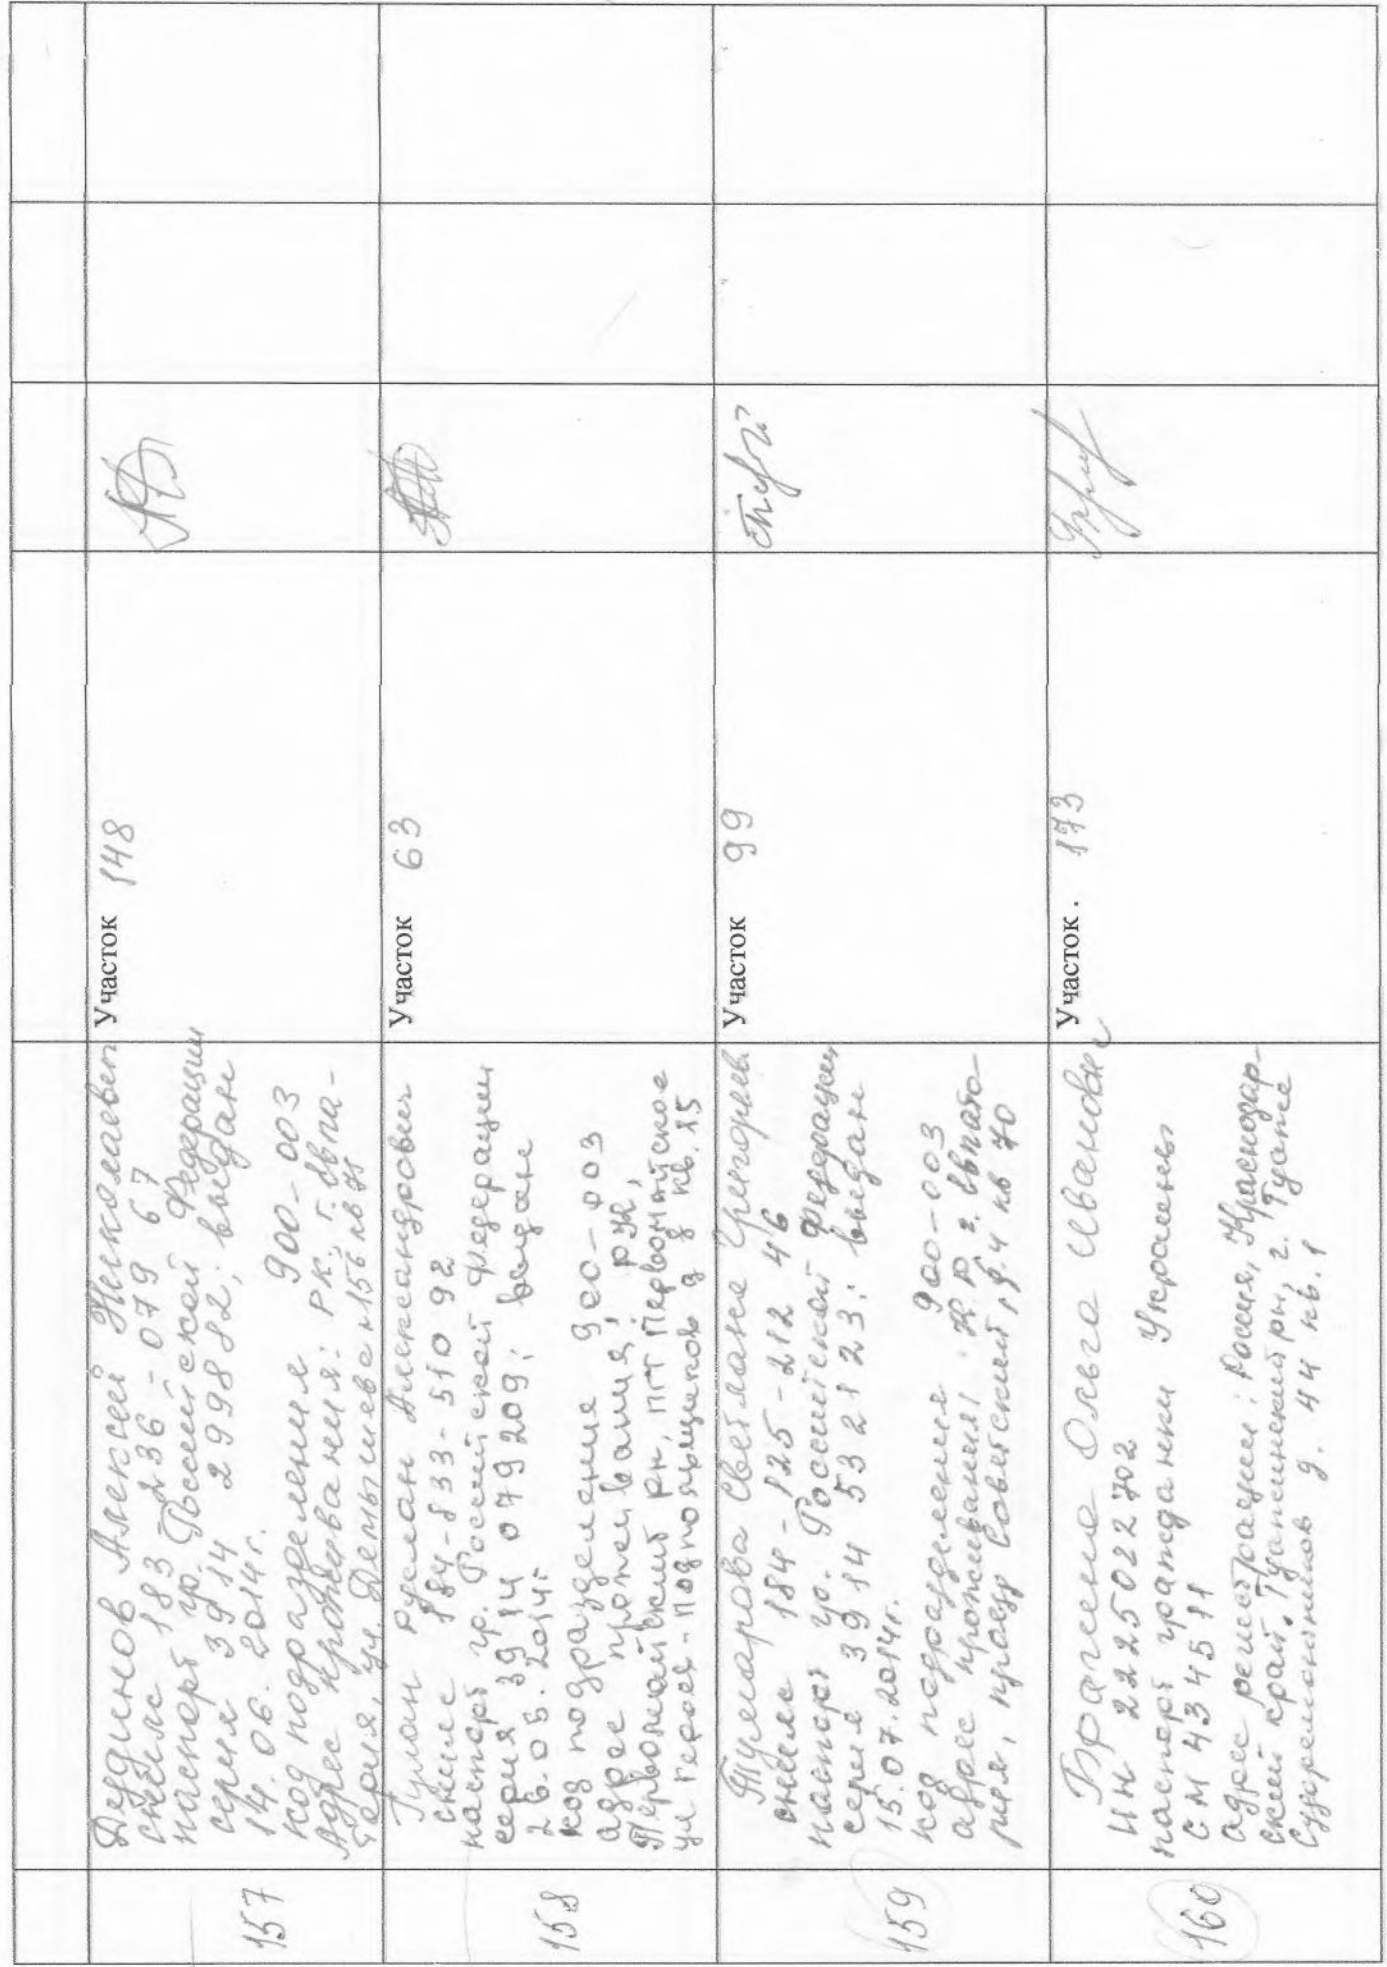 157
Дердинов Алексей Николаевич
снилс 183 236-079 67
паспорт гр. Российской Федерации
серия 3914 299882; выдан
14.06.2014г.
код подразделения 900-003
Адрес проживания: РК, г. Евпа-
тория, ул. Демышева 156 кв 71
Участок 148
158
Гулан Руслан Александрович
снилс 184-833-510 92
паспорт гр. Российской Федерации
серия 3914 079209; выдан
26.05.2014г
код подразделение 900-003
адрес проживания; РК,
Первомайский рн, пгт Первомайское
ул Героев-Подпольщиков д 8 кв. 15
Участок 63
159
Светлана Григорьев
снилс 184-125-212 46
паспорт гр. Российской Федерации
серия 3914 532123; выдан
15.07.2014г.
код подразделения 900-003
адрес проживания: РК г. Евпато-
рия, проезд Советский, д. 4 кв 70
Участок 99
160
Брагина Ольга Ивановна
ИН 2225022702
паспорт гражданки Украины
СМ 434511
адрес регистрации: Россия, Краснодар-
ский край. Туапсинский рн, г. Туапсе
Судоремонтников д. 44 кв. 1
Участок. 173